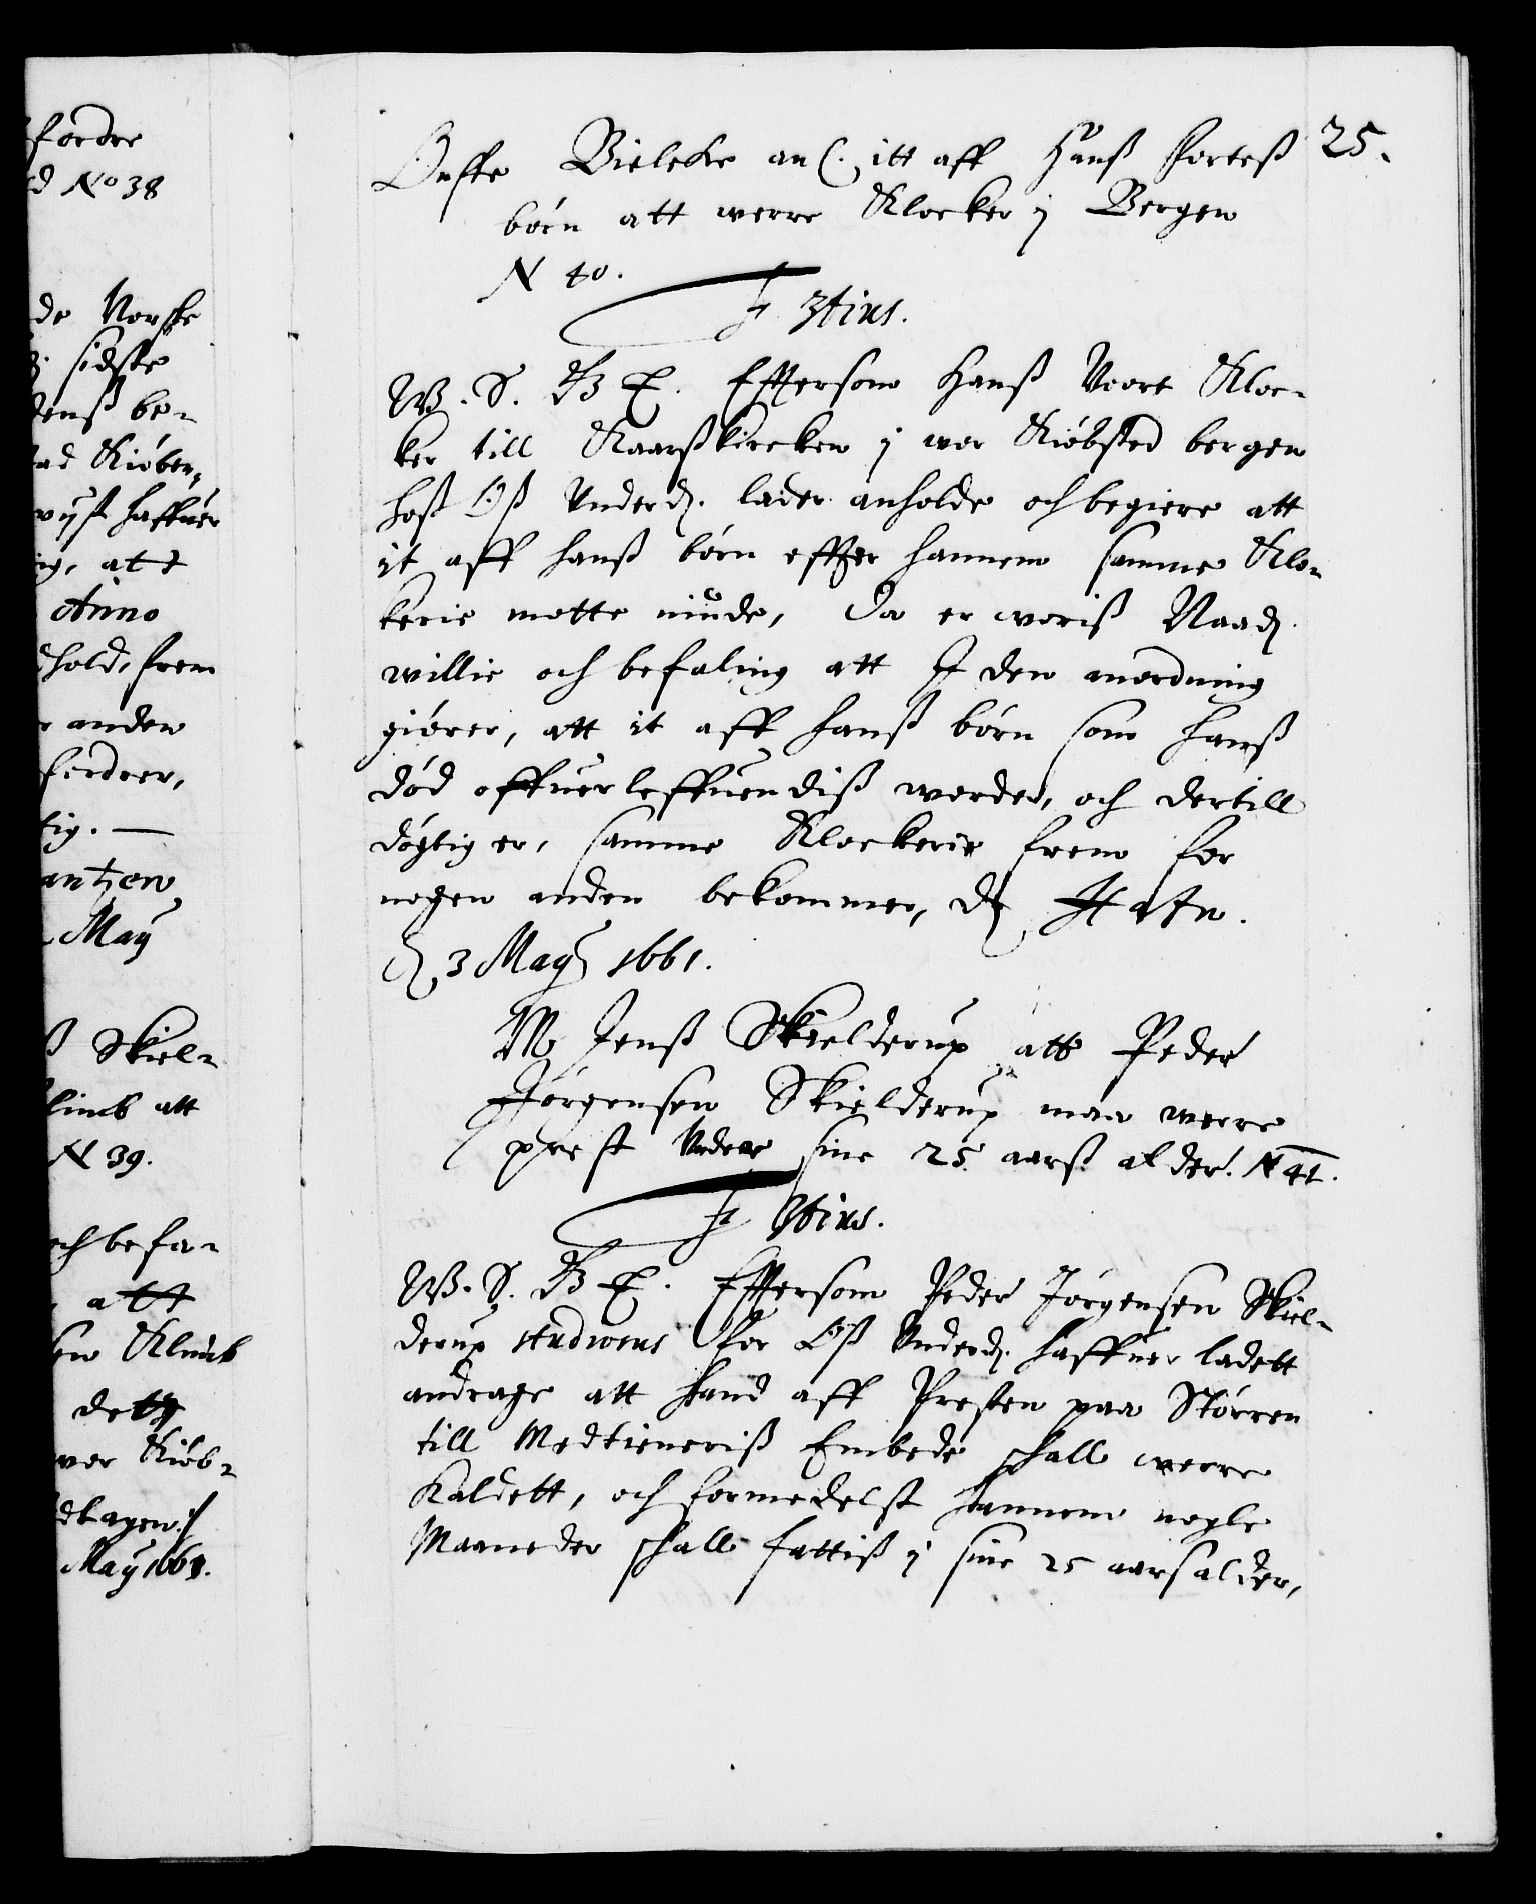 fordre
d No 38
de Norske
sidste
Jenß be-
ad Kiøben-
vijst haffuer
ig, att
Anno
hold, frem
anden
ferdrer,
tig. —
antzow
May
ß Skiel-
limb att
N 39.
och befa-
att
en Klimb
dett
wor Kiøb-
dtagen
May 1661.
25.
Offe Bielcke an. itt aff Hanß Forteß
børn att werre Klocker j Bergen
N 40.
F 3tius.
W. S. G E. Effterson Hanß Voort Kloc-
ker till Kaarßkircken j wor Kiøbsted bergen
hoß Oß Underd. lader anholde och begiere att
it aff hanß børn effter hannem samme Klo-
kerie motte niude, Da er woriß Naad.
willie och befaling att I den anordning
giører, att it aff hanß børn som hanß
død offuerleffuendiß worder, och dertill
døgtig er, samme Klockerie frem for
nogen anden bekommer, D
D 3 May 1661.
M Jenß Skielderup att Peder
Jørgensen Skielderup maa werre
prest Under sine 25 aarß alder. N 41.
F 3tius.
W. S. G E. Effterson Peder Jørgensen Skiel-
derup studiosus for Oß Underd. haffuer ladett
andrage att hand aff Presten paa Størren
till Medtieneriß Embede schall werre
Kaldett, och formedelst hannem nogle
Maaneder schall fattiß j sine 25 aarsalder,